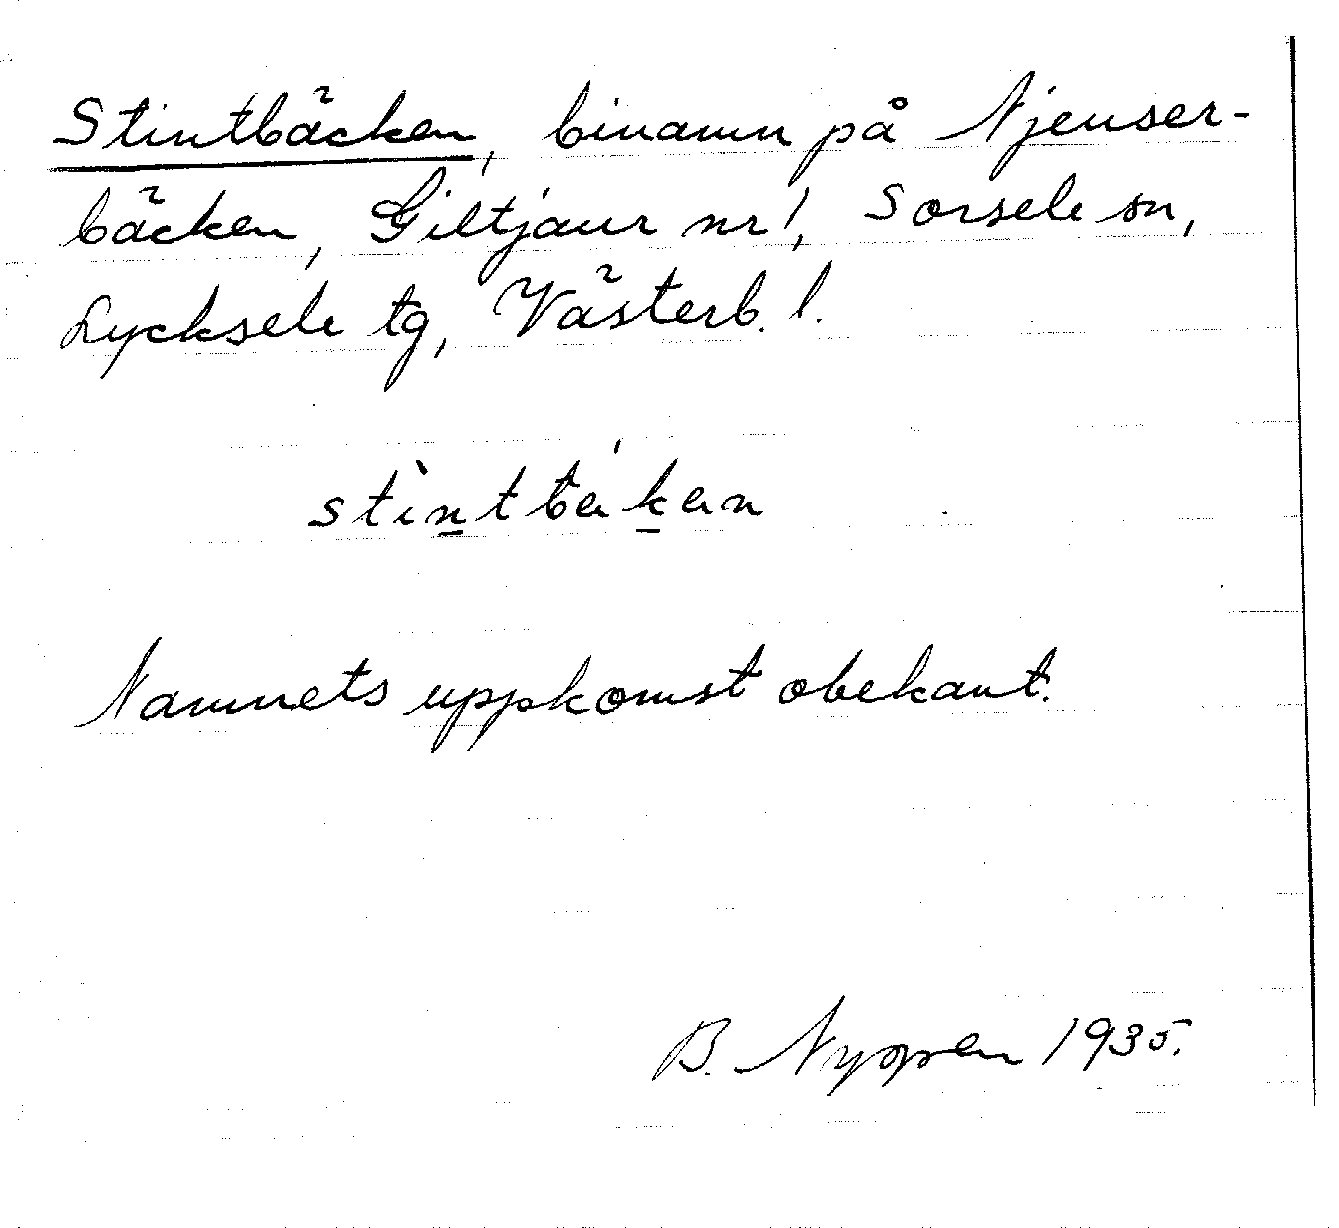 Stintbäcken, binamn på Njenser-
bäcken, Giltjaur nr 1, Sorsele sn,
Lycksele tg, Västerb. l.
Namnets uppkomst obekant.
B. Nyppen 1935.